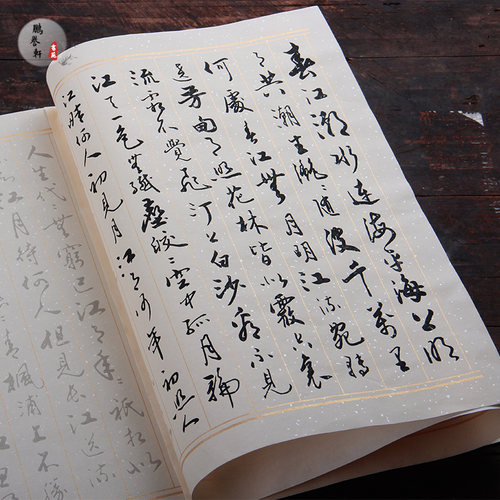 鵬譽軒
春江潮水連海平海上明
月共潮生灩〻隨波千萬里
何處春江無月明江流宛轉
遶芳甸月照花林皆似霰空裏
流霜不覺飛汀上白沙看不見
江天一色無纖塵皎〻空中孤月輪
江畔何人初見月江月何年初照人
人生代〻無窮已江月年〻祇相似
江月待何人但見長江送流
青楓浦上不勝